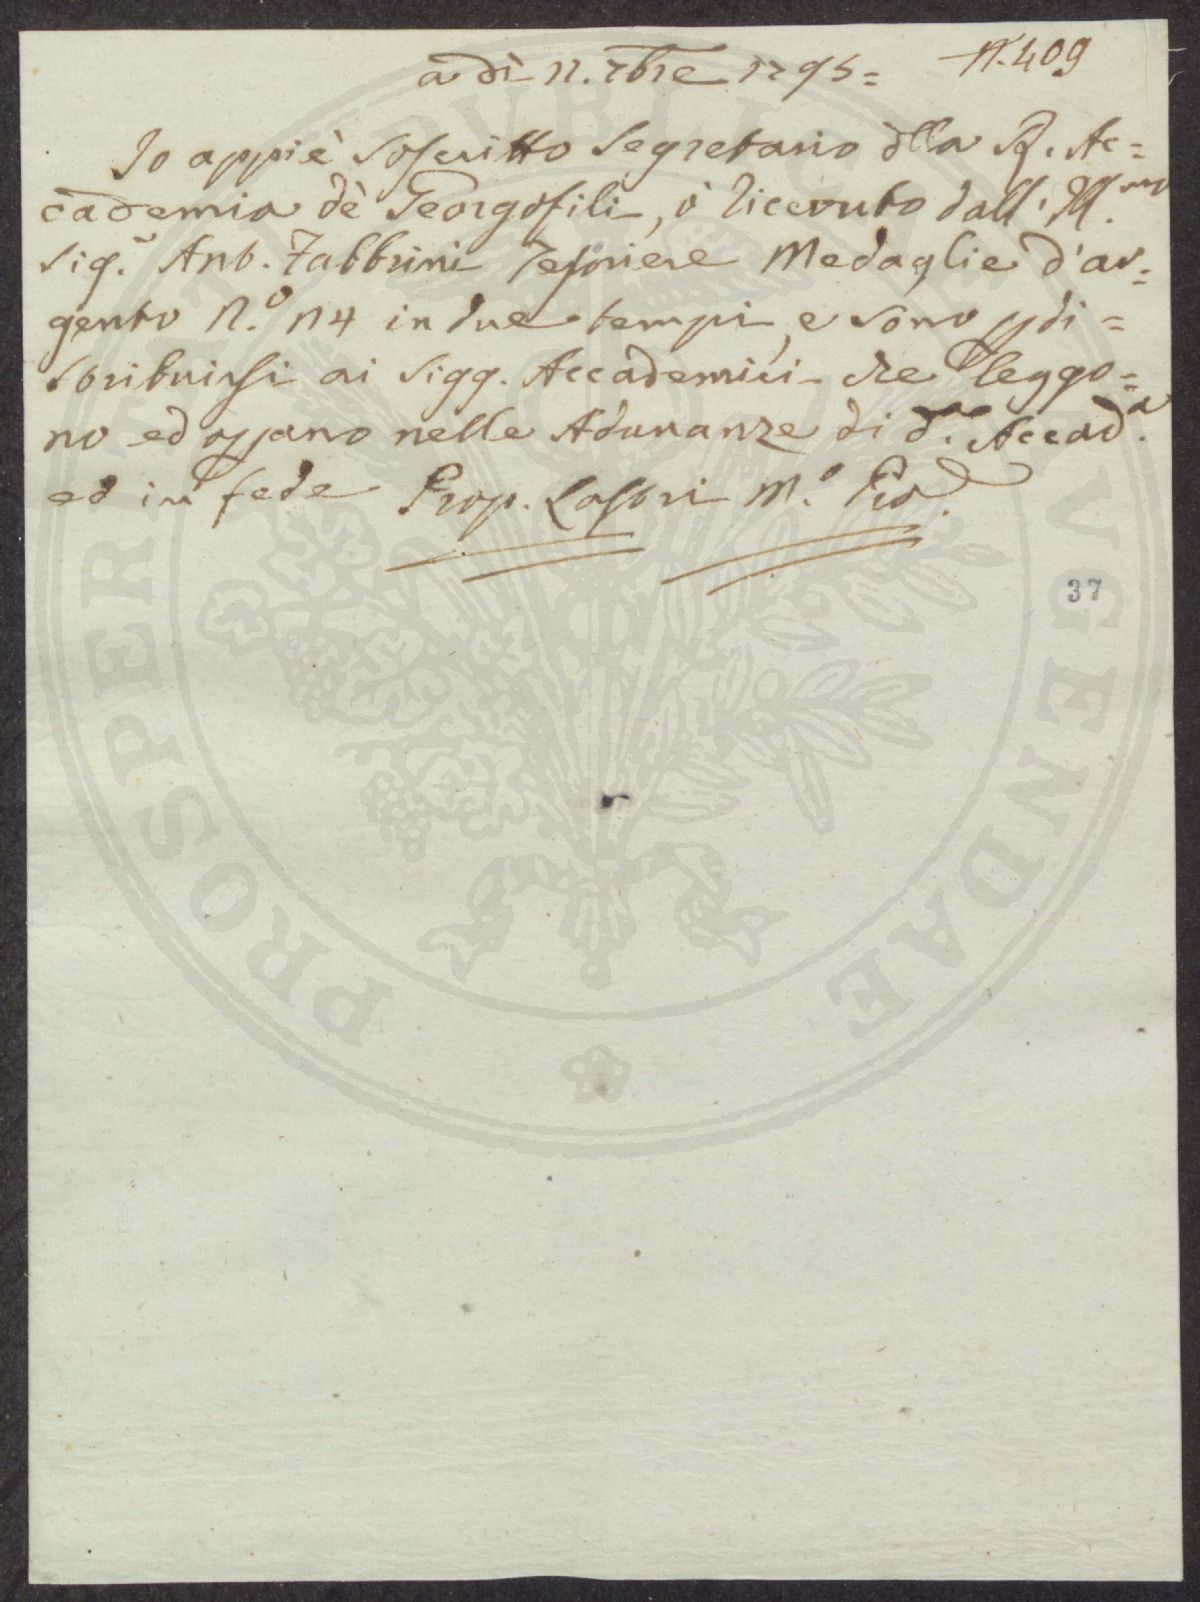 N. 409
adì 12. 7bre 1795=
Io appiè soscritto Segretario dlla R. Ac=
cademia dè Georgofili, ò ricevuto dall' Ill.mo
Sig.r Ant. Fabbrini Tesoriere Medaglie d'ar=
gento N.o 114 in due tempi, e sono p di=
stribuirsi ai Sigg. Accademici che leggo=
no ed oprano nelle Adunanze di d.a Accad.a
ed in fede Prop. Lastri M.o Pro.
37
PROSPERITATI PVBLICAE AVGENDAE